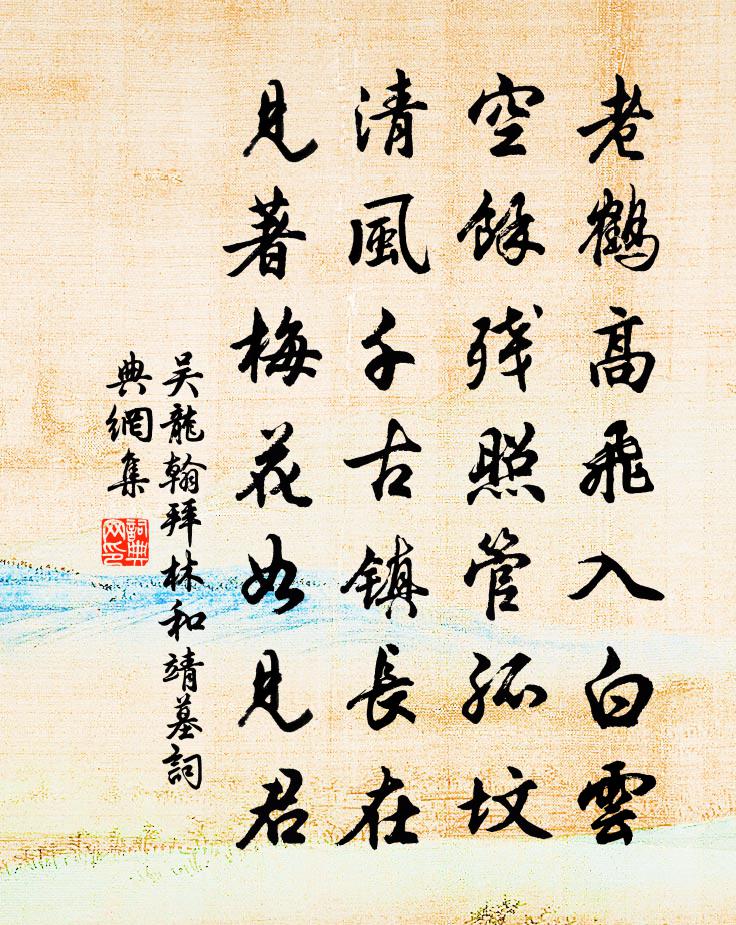 老鶴高飛入白雲
空餘殘照管孤墳
清風千古鎮長在
見著梅花如見君
吴龍翰拜林和靖墓詞
典網集
詞典网印